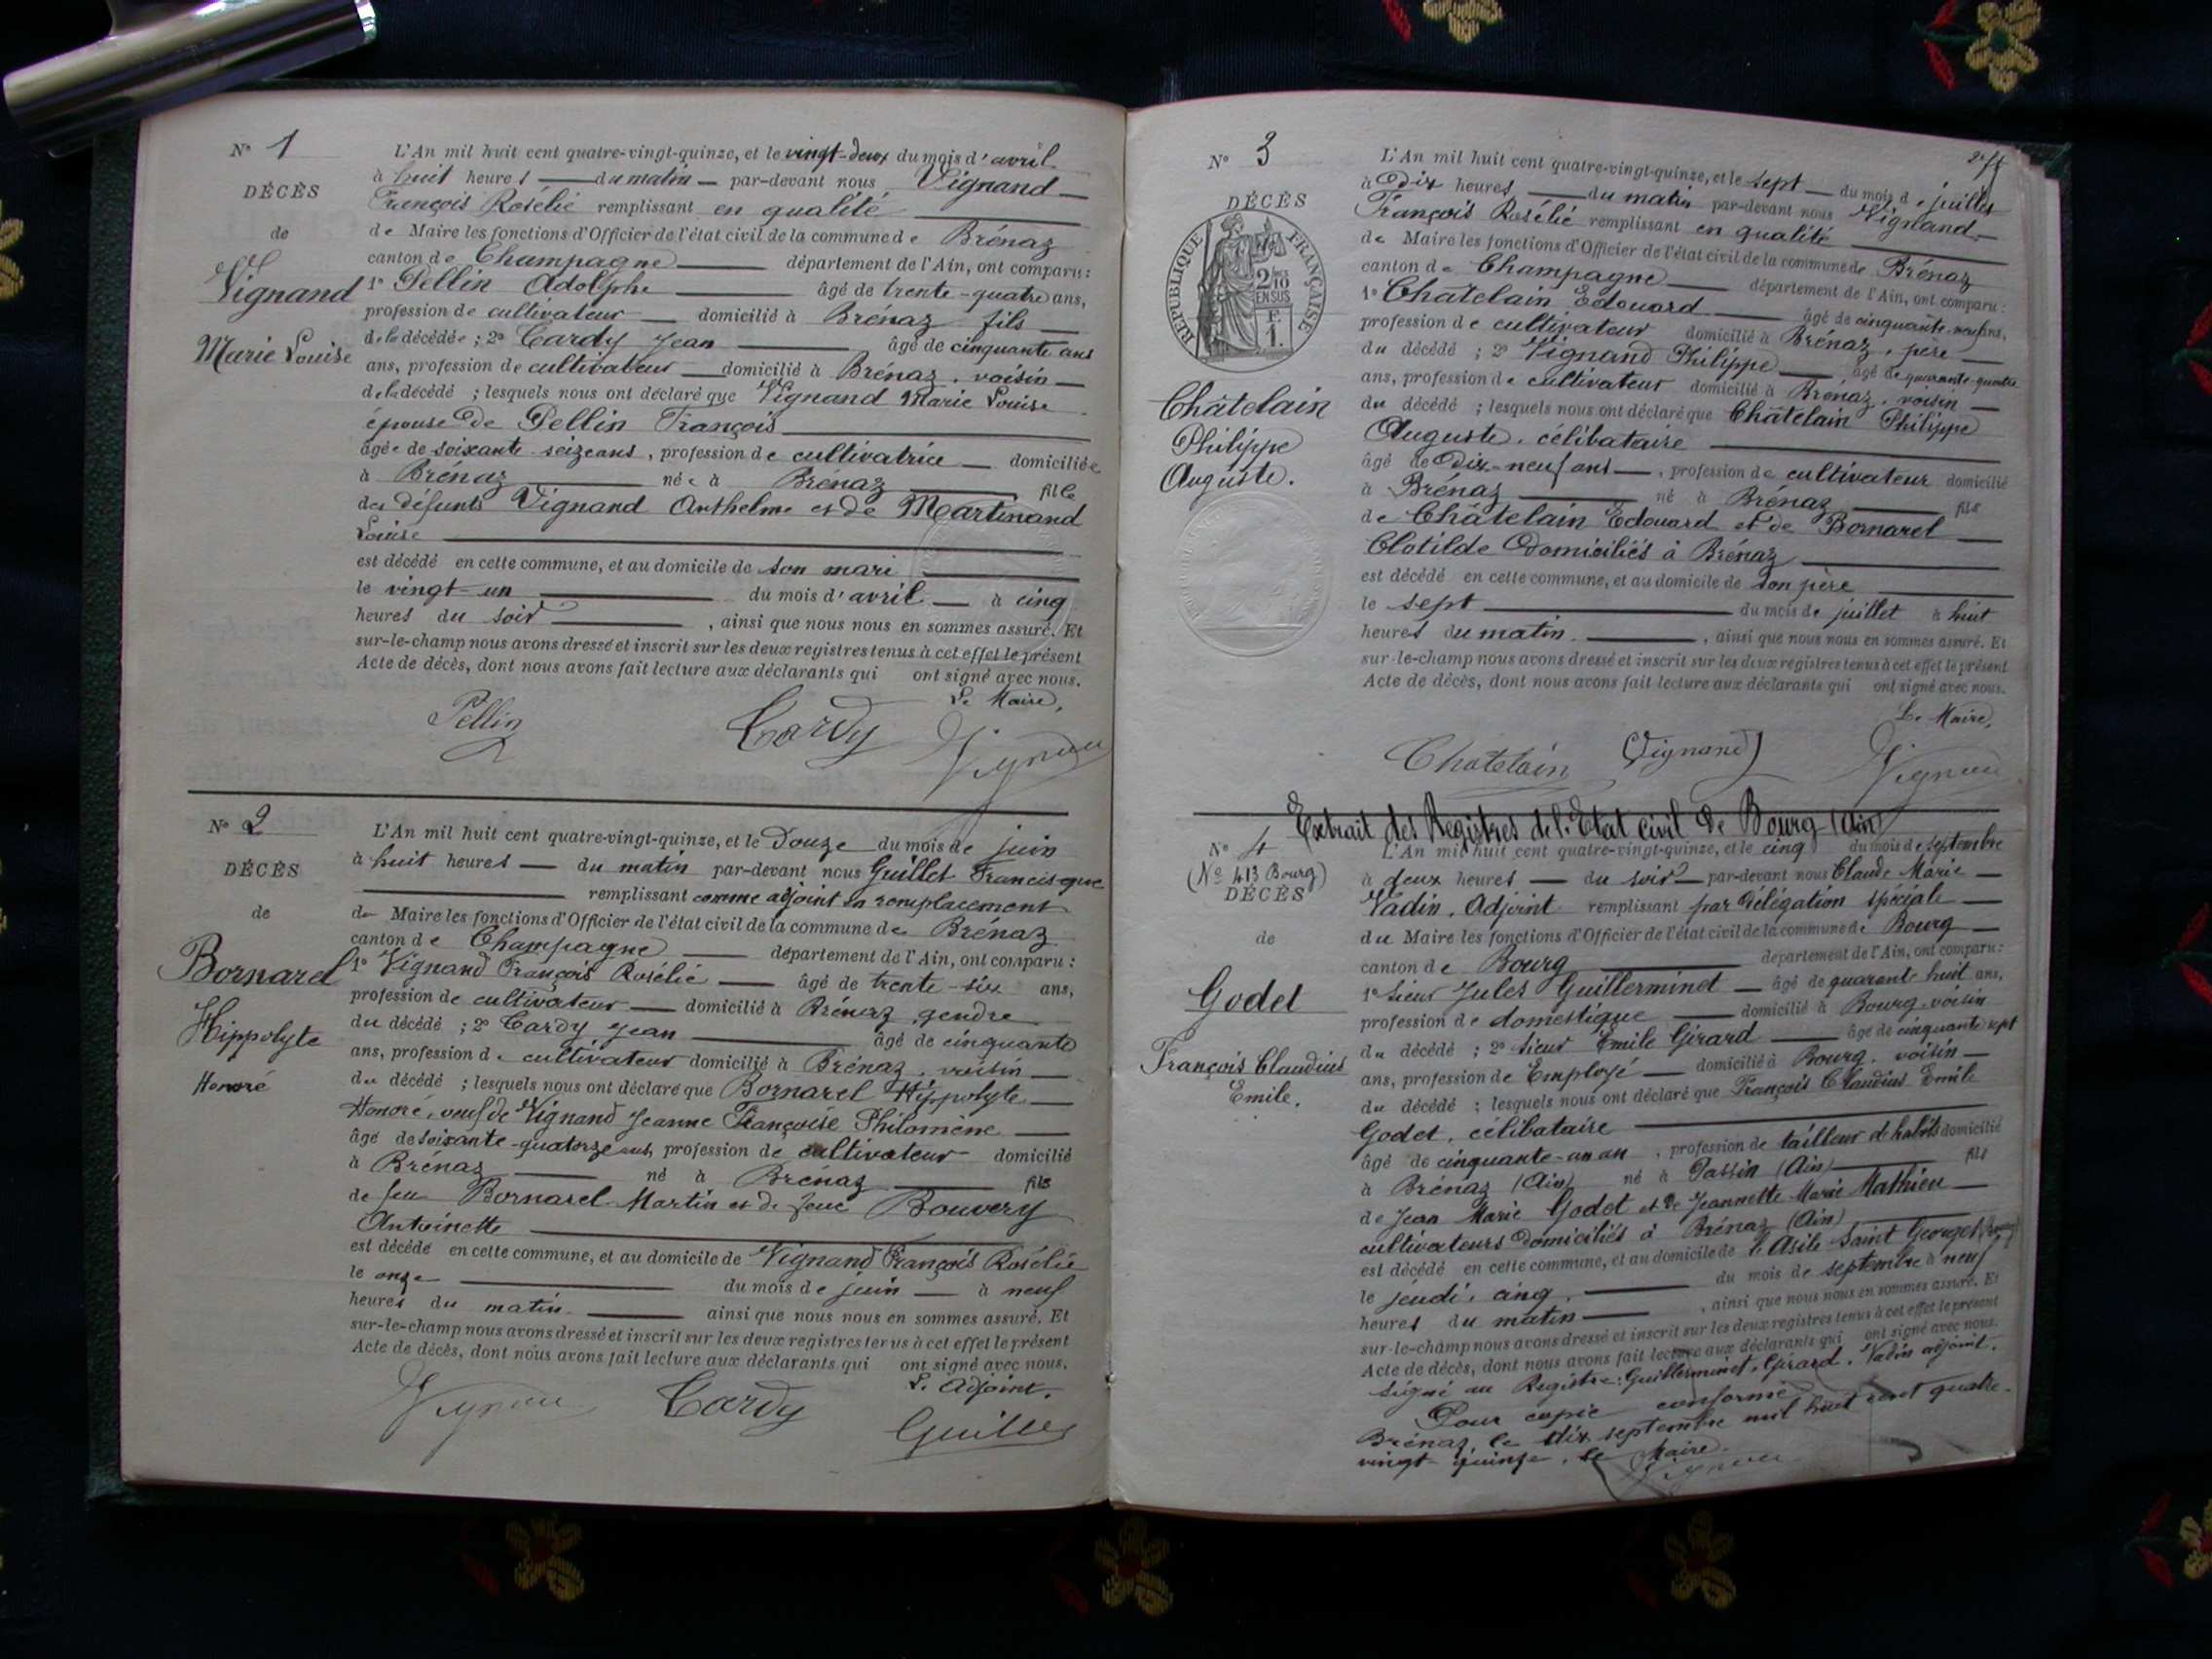 N° 1
DÉCÈS
de
Vignand
Marie Louise
L'An mil huit cent quatre-vingt-quinze, et le vingt-deux du mois d'avril
à huit heures du matin par-devant nous Vignand
François Rosélie remplissant en qualité
de Maire les fonctions d'Officier de l'état civil de la commune de Brénaz
canton de Champagne département de l'Ain, ont comparu :
1° Pellin Adolphe âgé de trente-quatre ans,
profession de cultivateur domicilié à Brénaz fils
de la décédée ; 2° Cardy Jean âgé de cinquante ans
ans, profession de cultivateur domicilié à Brénaz, voisin
de la décédé ; lesquels nous ont déclaré que Vignand Marie Louise
épouse de Pellin François
âgée de soixante-seize ans, profession de cultivatrice domiciliée
à Brénaz née à Brénaz fille
des défunts Vignand Anthelme et de Martinand
Louise
est décédé en cette commune, et au domicile de son mari
le vingt-un du mois d'avril à cinq
heures du soir, ainsi que nous nous en sommes assuré. Et
sur-le-champ nous avons dressé et inscrit sur les deux registres tenus à cet effet le présent
Acte de décès, dont nous avons fait lecture aux déclarants qui ont signé avec nous.
Le Maire,
Pellin Cardy Vignand
N° 2
DÉCÈS
de
Bornarel
Hippolyte
Honoré
L'An mil huit cent quatre-vingt-quinze, et le Douze du mois de juin
à huit heures du matin par-devant nous Guillet Francisque
remplissant comme adjoint en remplacement
de Maire les fonctions d'Officier de l'état civil de la commune de Brénaz
canton de Champagne département de l'Ain, ont comparu :
1° Vignand François Rosélie âgé de trente-six ans,
profession de cultivateur domicilié à Brénaz, gendre
du décédé ; 2° Cardy Jean âgé de cinquante
ans, profession de cultivateur domicilié à Brénaz, voisin
du décédé ; lesquels nous ont déclaré que Bornarel Hippolyte
Honoré, veuf de Vignand Jeanne Françoise Philomène
âgé de soixante-quatorze ans, profession de cultivateur domicilié
à Brénaz né à Brénaz fils
de feu Bornarel Martin et de feue Bouvery
Antoinette
est décédé en cette commune, et au domicile de Vignand François Rosélie
le onze du mois de juin à neuf
heures du matin ainsi que nous nous en sommes assuré. Et
sur-le-champ nous avons dressé et inscrit sur les deux registres tenus à cet effet le présent
Acte de décès, dont nous avons fait lecture aux déclarants qui ont signé avec nous.
L'adjoint,
Vignand Cardy Guillet
N° 3
DÉCÈS
RÉPUBLIQUE FRANÇAISE
2/10 EN SUS
F. 1.
Châtelain
Philippe
Auguste.
L'An mil huit cent quatre-vingt-quinze, et le sept du mois de juillet
à Dix heures du matin par-devant nous Vignand
François Rosélie remplissant en qualité
de Maire les fonctions d'Officier de l'état civil de la commune de Brénaz
canton de Champagne département de l'Ain, ont comparu :
1° Châtelain Edouard âgé de cinquante-neuf ans,
profession de cultivateur domicilié à Brénaz, père
du décédé ; 2° Vignand Philippe âgé de quarante-quatre
ans, profession de cultivateur domicilié à Brénaz, voisin
du décédé ; lesquels nous ont déclaré que Châtelain Philippe
Auguste, célibataire
âgé de Dix-neuf ans, profession de cultivateur domicilié
à Brénaz né à Brénaz fils
de Châtelain Edouard et de Bornarel
Clotilde Domiciliés à Brénaz
est décédé en cette commune, et au domicile de son père
le sept du mois de juillet à huit
heures du matin, ainsi que nous nous en sommes assuré. Et
sur-le-champ nous avons dressé et inscrit sur les deux registres tenus à cet effet le présent
Acte de décès, dont nous avons fait lecture aux déclarants qui ont signé avec nous.
Le Maire,
Chatelain Vignand Vignand
Extrait des Registres de l'Etat civil de Bourg (Ain)
N° 4
(N° 413 Bourg)
DÉCÈS
de
Godet
François Claudius
Emile.
L'An mil huit cent quatre-vingt-quinze, et le cinq du mois de septembre
à deux heures du soir par-devant nous Claude Marie
Vadin, Adjoint remplissant par délégation spéciale
du Maire les fonctions d'Officier de l'état civil de la commune de Bourg
canton de Bourg département de l'Ain, ont comparu :
1° sieur Jules Guillerminet âgé de quarante huit ans,
profession de domestique domicilié à Bourg, voisin
du décédé ; 2° sieur Emile Girard âgé de cinquante sept
ans, profession de Employé domicilié à Bourg, voisin
du décédé ; lesquels nous ont déclaré que François Claudius Emile
Godet, célibataire
âgé de cinquante-un an, profession de tailleur d'habits domicilié
à Brénaz (Ain) né à Passin (Ain) fils
de Jean Marie Godet et de Jeannette Marie Mathieu
cultivateurs domiciliés à Brénaz (Ain)
est décédé en cette commune, et au domicile de l'Asile Saint Georges
le jeudi, cinq, du mois de septembre à neuf
heures du matin, ainsi que nous nous en sommes assuré. Et
sur-le-champ nous avons dressé et inscrit sur les deux registres tenus à cet effet le présent
Acte de décès, dont nous avons fait lecture aux déclarants qui ont signé avec nous.
Signé au Registre: Guillerminet, Girard, Vadin adjoint.
Pour copie conforme
Brénaz, le dix septembre mil huit cent quatre-
vingt-quinze, le Maire.
Vignand